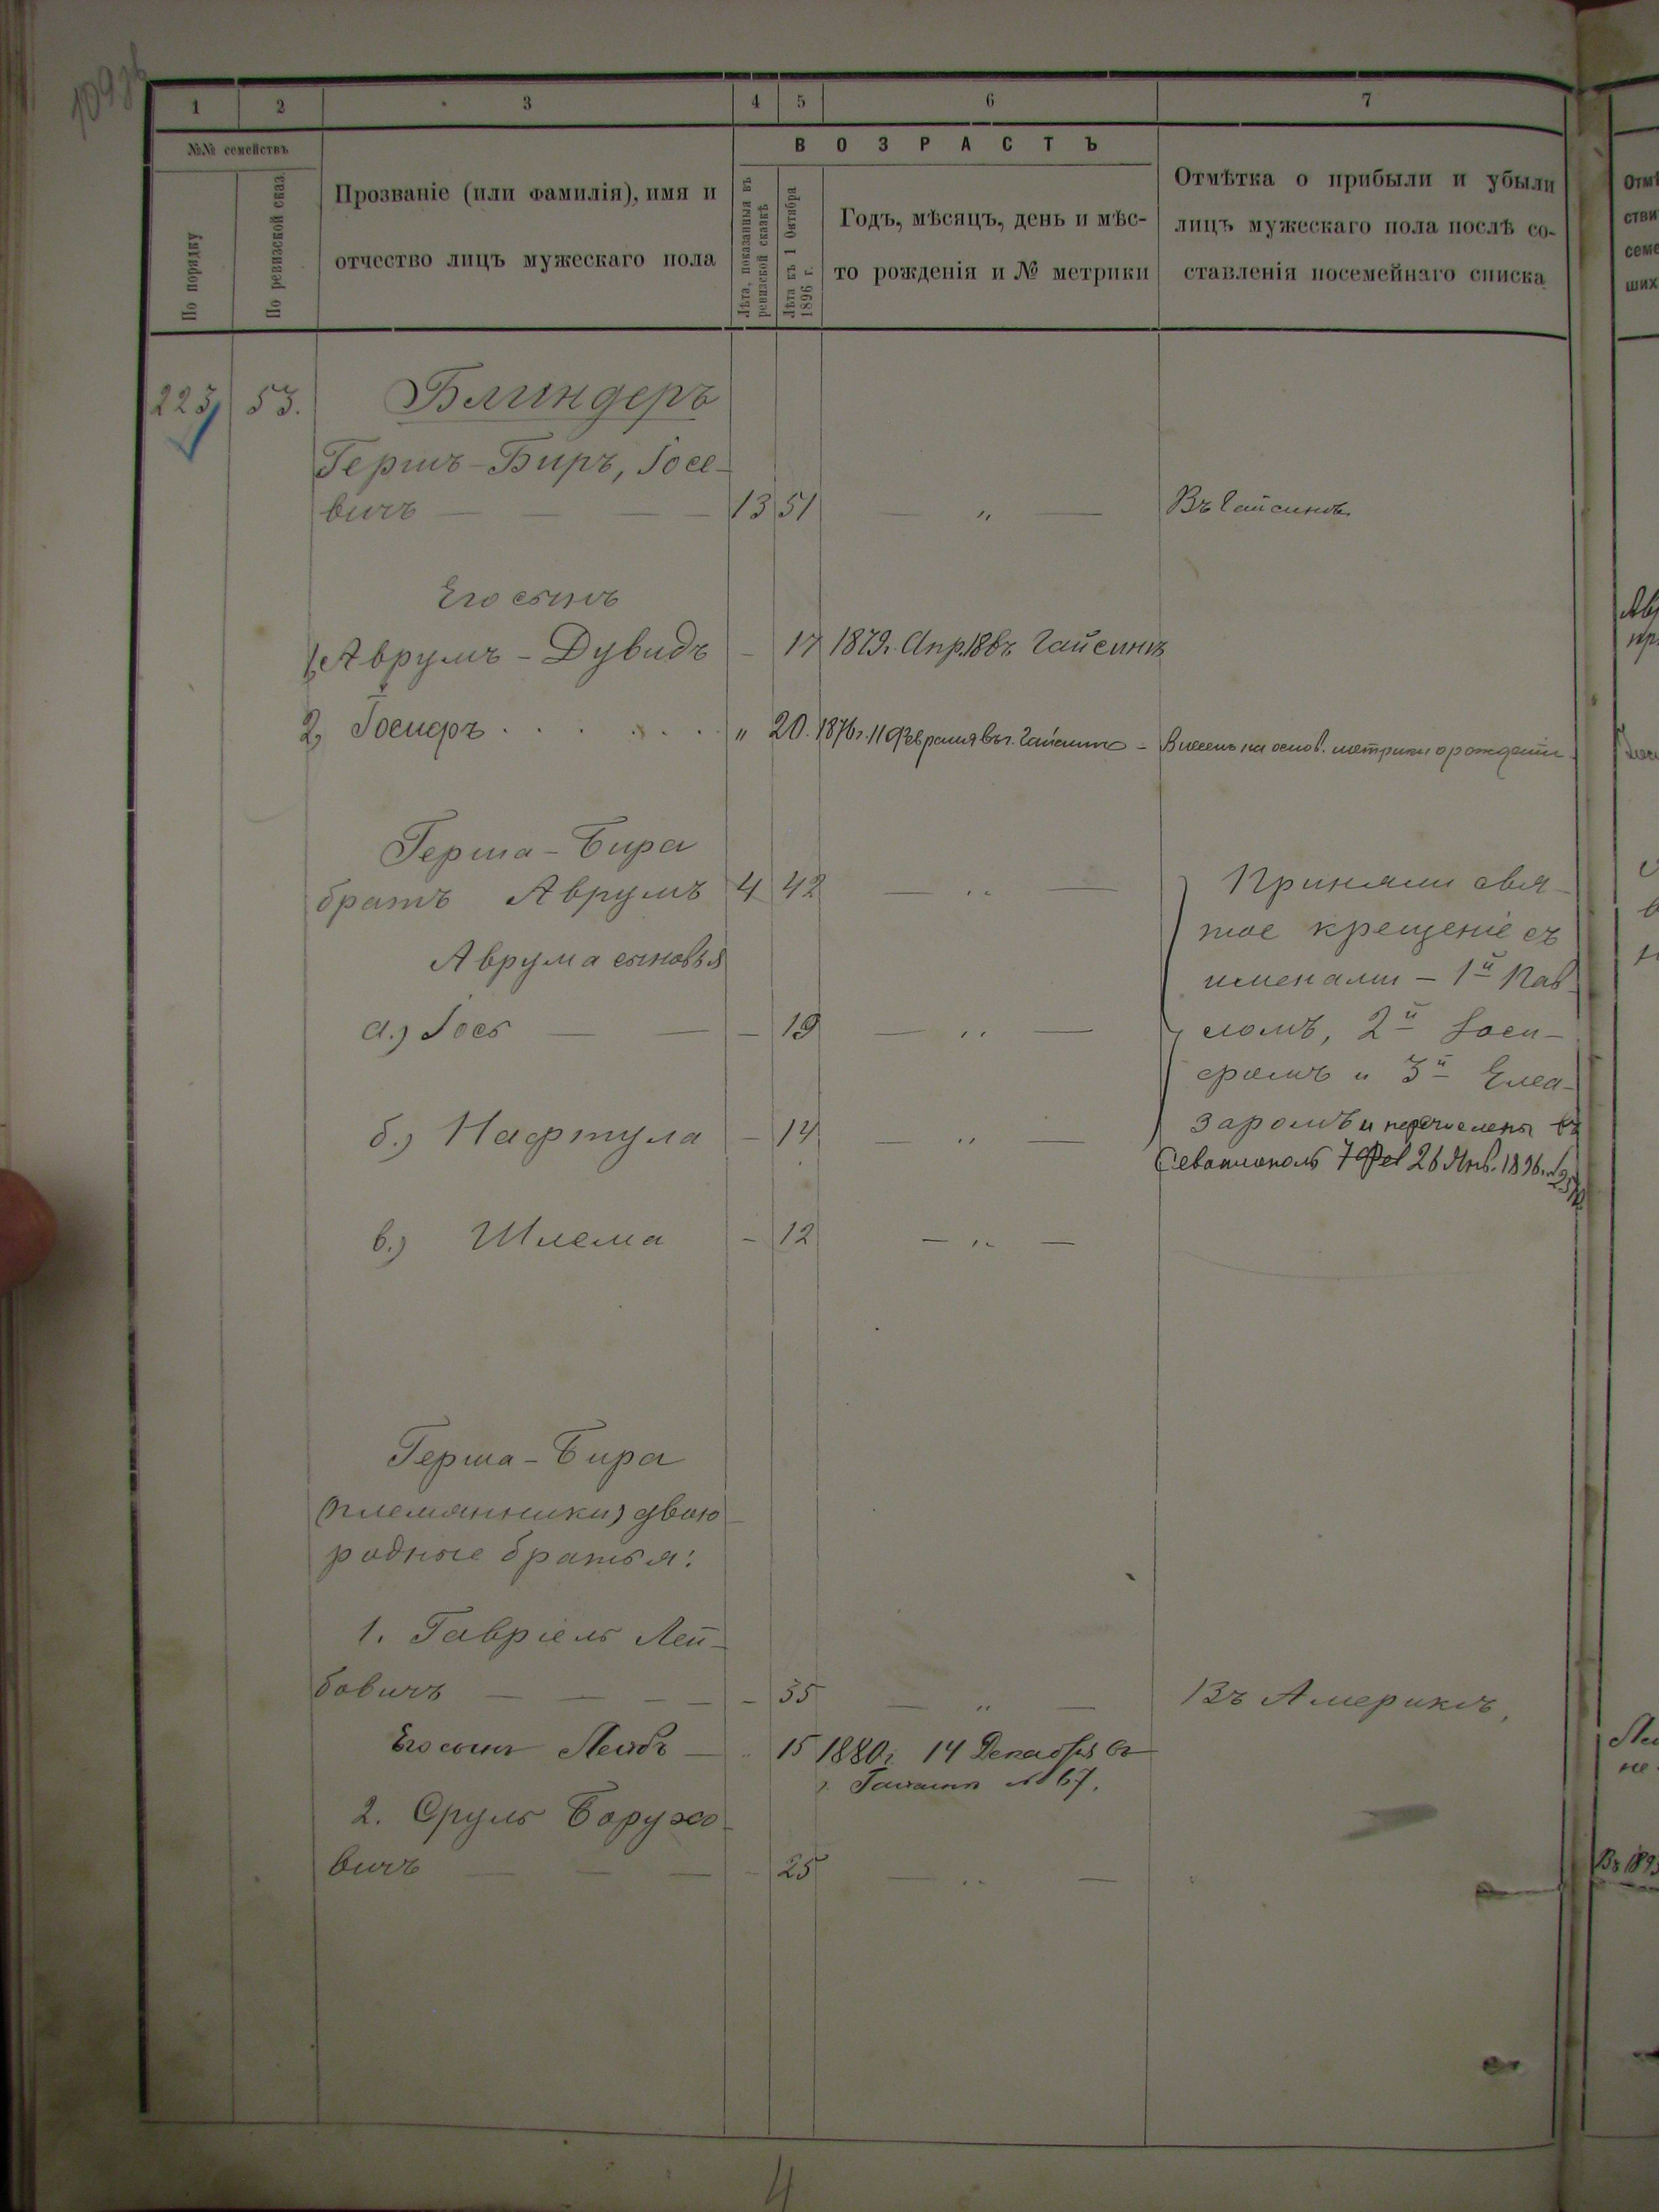 109зв
1 2 3 4 5 6 7
№№ семействъ
По порядку
По ревизской сказ
Прозваніе (или фамилія), имя и
отчество лицъ мужескаго пола
ВОЗРАСТЪ
Лѣта, показанныя въ
ревизской сказкѣ
Лѣта къ 1 Октября
1896 г.
Годъ, мѣсяцъ, день и мѣс-
то рожденія и № метрики
Отмѣтка о прибыли и убыли
лицъ мужескаго пола послѣ со-
ставленія посемейнаго списка
223 53. Блиндеръ
Гершъ-Биръ, Іосе-
вичъ — — — 13 51 — „ — Въ Гайсинѣ
Его сынъ
1, Аврумъ-Дувидъ - 17 1879г. Апр. 18 въ Гайсинѣ
2, Іосифъ . . . . . . „ 20. 1876г. 11 Февраля въ г. Гайсинѣ - Внесенъ на основ. метрики о рожденіи.
Герша-Бира
братъ Аврумъ 4 42 — „ —
Аврума сыновья
а.) Іось — — - 19 — „ —
б.) Нафтула - 14 — „ —
в.) Шлема - 12 — „ —
Приняли свя-
тое крещеніе съ
именами - 1й Пав-
ломъ, 2й Іоси-
фомъ и 3й Елеа-
заромъ и перечислены въ
Севастополь 26 Янв. 1896.
Герша-Бира
(племянники) двою-
родные братья:
1. Гавріель Лей-
бовичъ — — - - - 35 — „ — Въ Америкѣ,
Его сынъ Лейбъ — „ 15 1880г 14 Декабря въ
г. Гайсинѣ № 67.
2. Сруль Борухо-
вичъ — — — - 25 — „ —
4